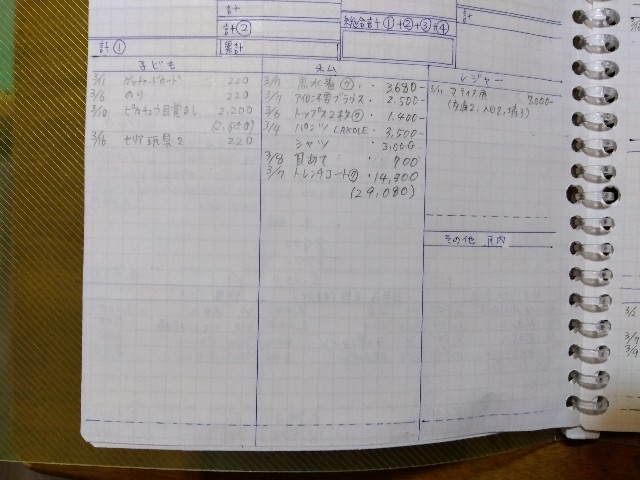 計
計②
総合計①+②+③+④
計
計①
累計
子ども
3/1 ガチャードカード 220
3/6 のり 220
3/10 ピカチュウ目覚まし 2,200
(2,640)
3/16 セリア玩具2 220
ネム
3/7 黒水着㋗ 3680-
3/7 アイロン不要ブラウス 2.500-
3/6 トップス2枚㋗ 1.400-
3/4 パンツ LAKOLE 3,500-
シャツ 3,000
3/8 目めて 700
3/7 トレンチコート㋗ 14,300
(29,080)
レジャー
3/11
その他 月内
3/2
3/7
3/9